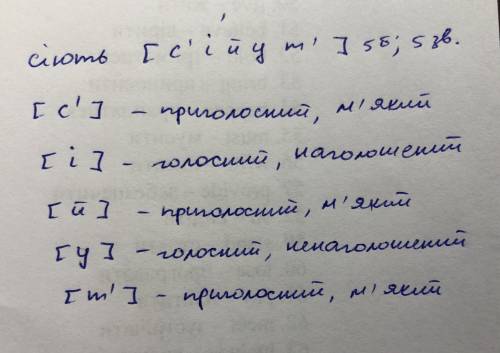 сіють [ с' і́ й у т' ] 5 б; 5 зв.
[ с' ] – приголосний, м'який
[ і ] – голосний, наголошений
[ й ] – приголосний, м'який
[ у ] – голосний, ненаголошений
[ т' ] – приголосний, м'який